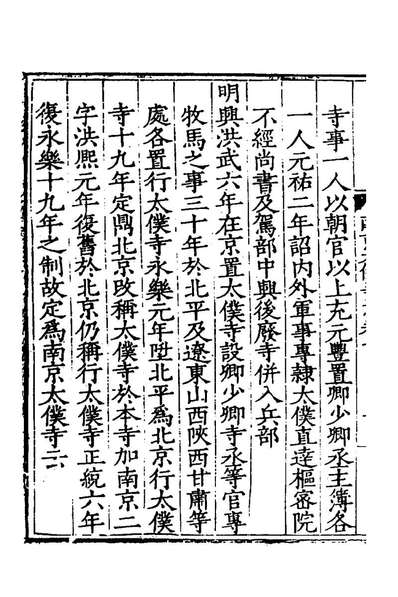 寺事一人以朝官以上充元豐置卿少卿丞主簿各
一人元祐二年詔内外軍事專隷太僕直達樞密院
不經尚書及駕部中興後廢寺併入兵部
明興洪武六年在京置太僕寺設卿少卿寺丞等官專
牧馬之事三十年於北平及遼東山西陝西甘肅等
處各置行太僕寺永樂元年陞北平爲北京行太僕
寺十九年定鼎北京改稱太僕寺於本寺加南京二
字洪熙元年復舊於北京仍稱行太僕寺正統六年
復永樂十九年之制故定爲南京太僕寺云